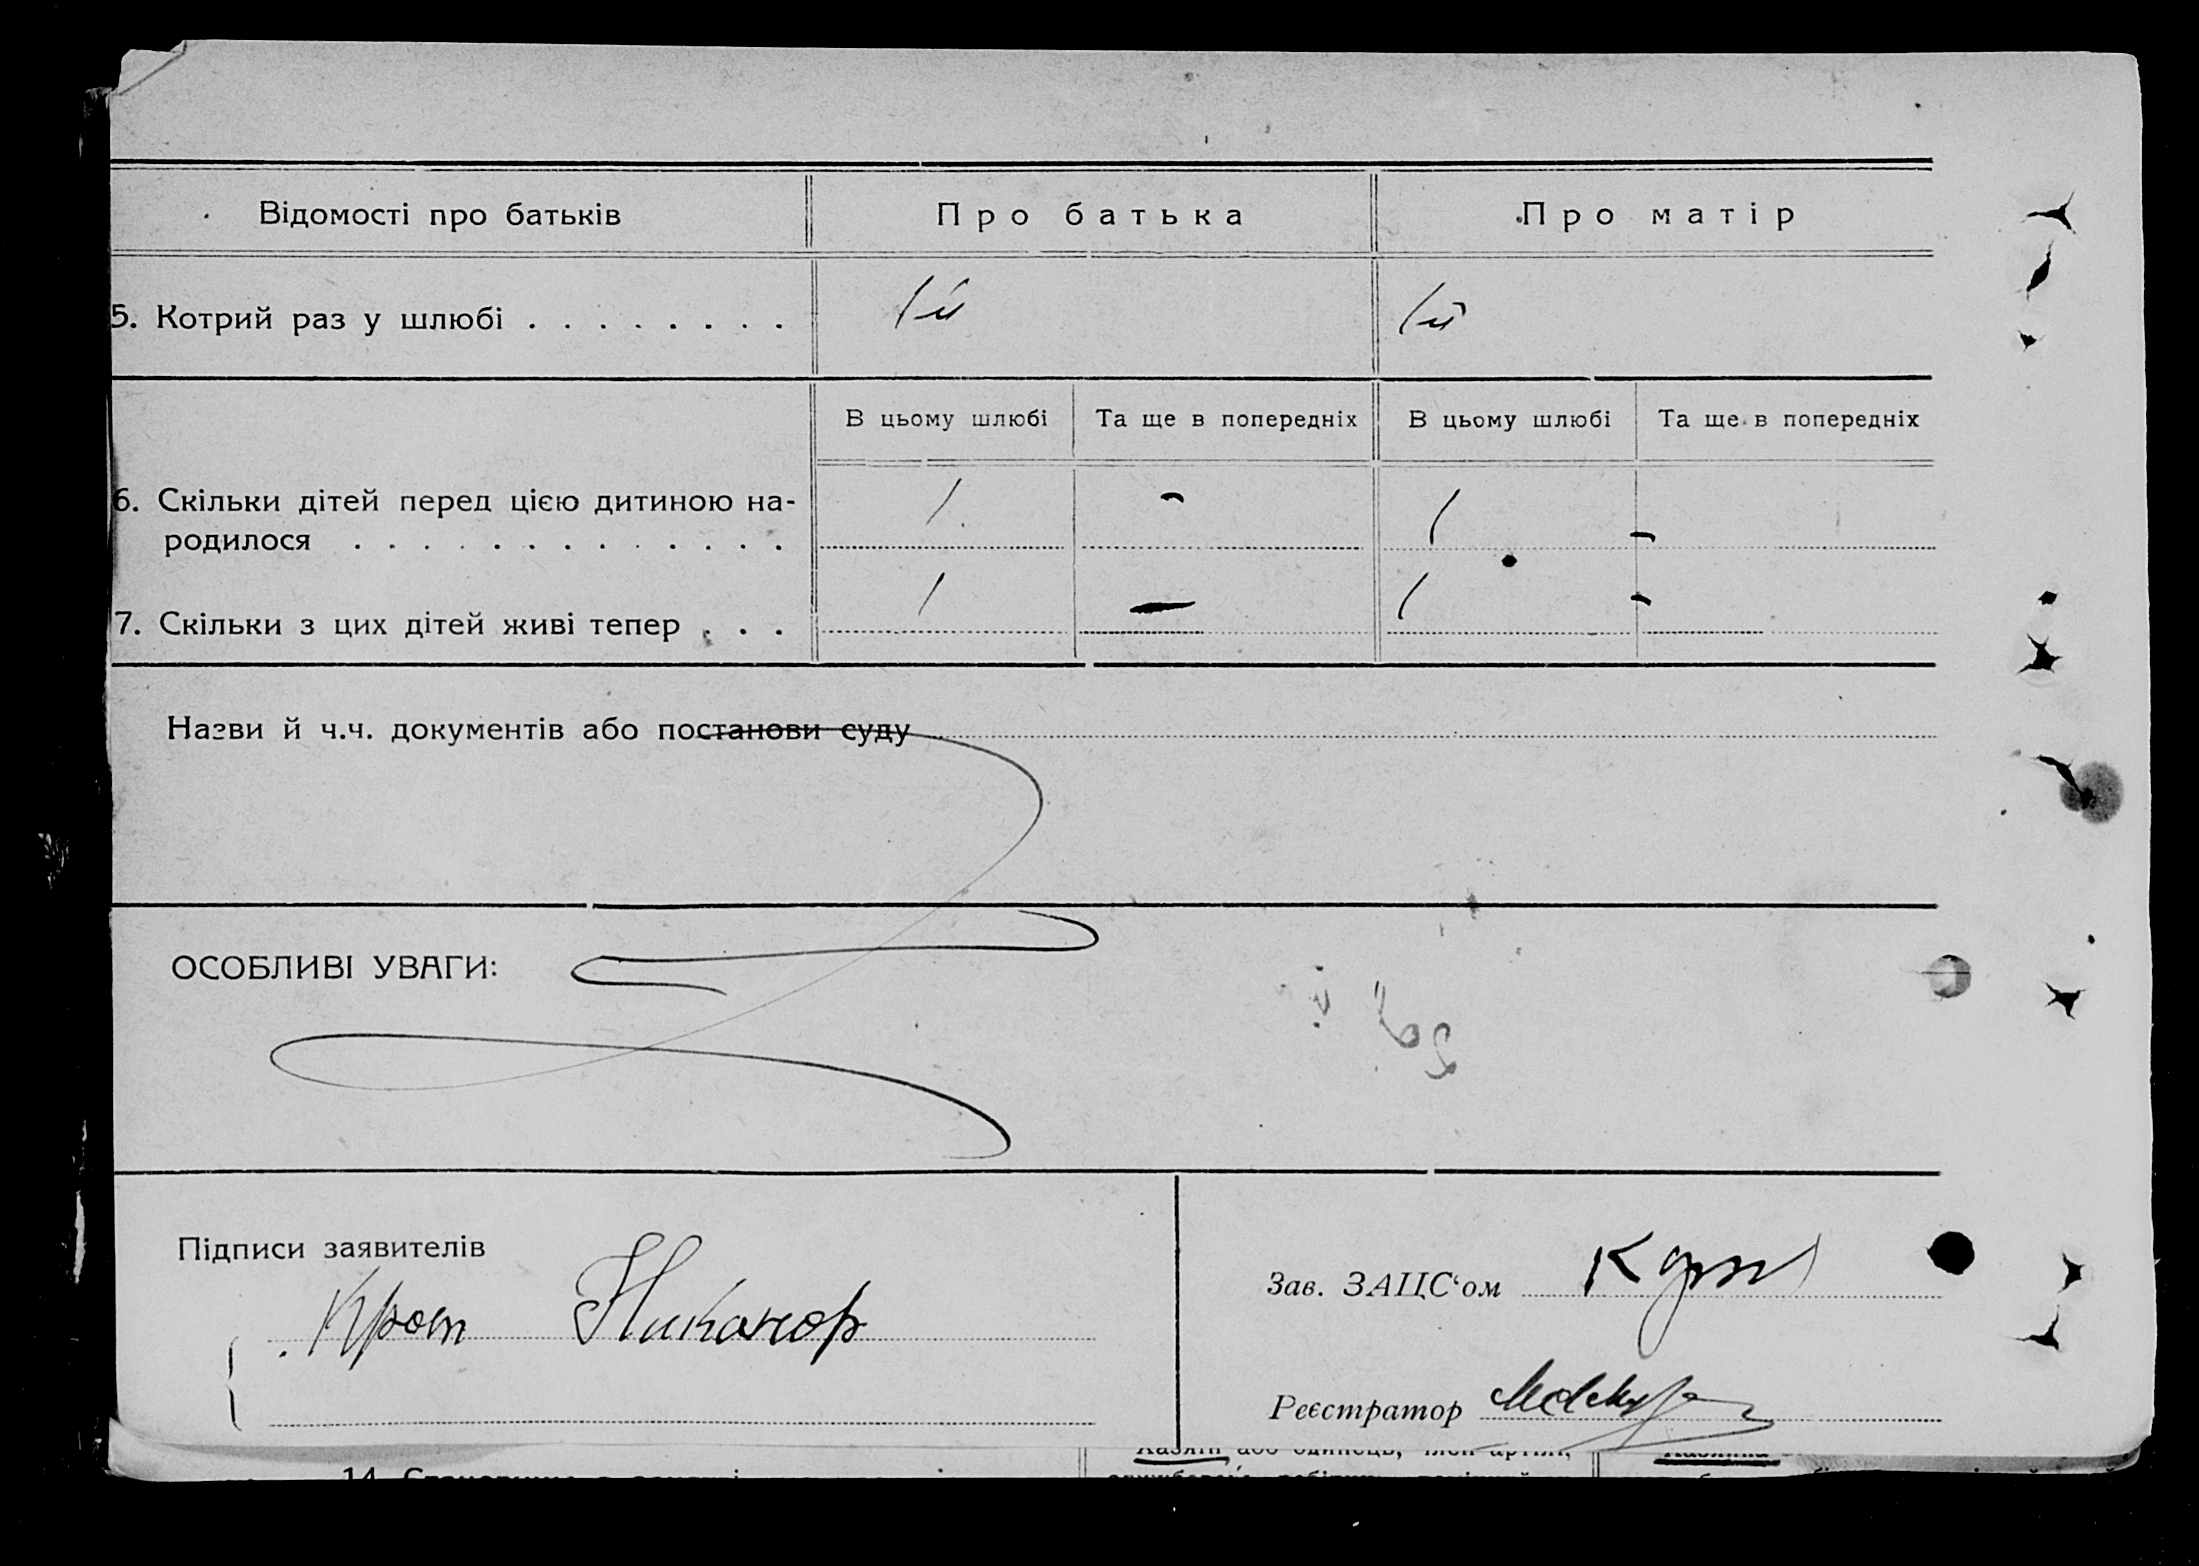 Відомості про батьків Про батька Про матір
5. Котрий раз у шлюбі . . . . . . . . 1й 1й
В цьому шлюбі Та ще в попередніх В цьому шлюбі Та ще в попередніх
6. Скільки дітей перед цією дитиною на-
родилося . . . . . . . . . . . . . . 1 - 1 -
7. Скільки з цих дітей живі тепер . . . 1 - 1 -
Назви й ч.ч. документів або постанови суду
ОСОБЛИВІ УВАГИ:
Підписи заявителів
Крот Никанор
Зав. ЗАЦС‘ом
Реєстратор
Хазяїн або одинець, член артілі,